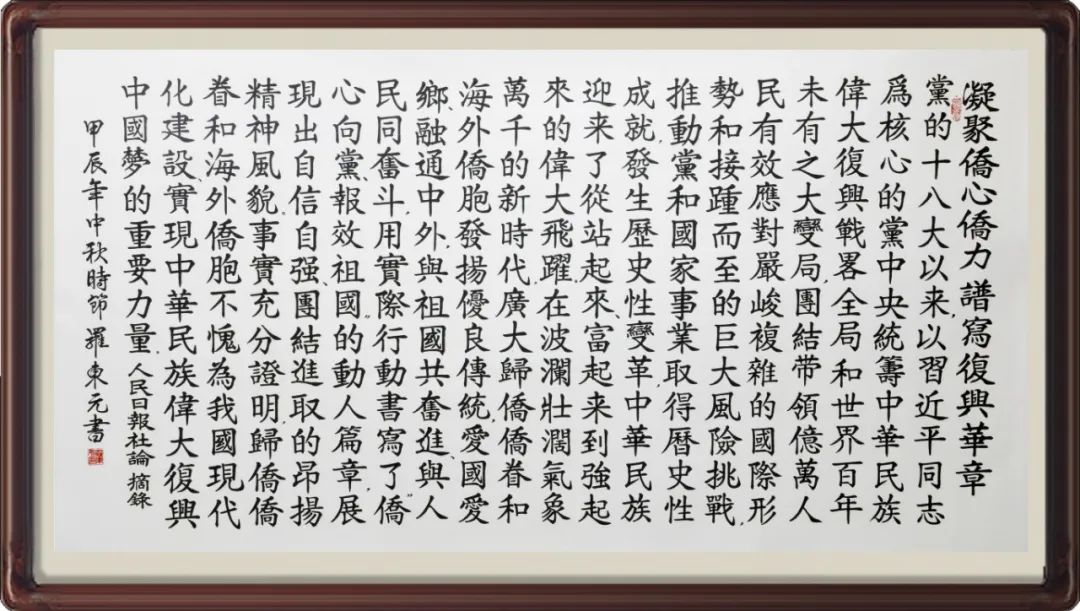 凝聚僑心僑力譜寫復興華章
黨的十八大以来,以習近平同志
爲核心的黨中央統籌中華民族
偉大復興戰畧全局和世界百年
未有之大變局,團結带領億萬人
民有效應對嚴峻複雜的國際形
勢和接踵而至的巨大風險挑戰,
推動黨和國家事業取得曆史性
成就,發生歷史性變革,中華民族
迎来了從站起來、富起来到強起
來的偉大飛躍,在波瀾壯濶氣象
萬千的新時代,廣大歸僑僑眷和
海外僑胞發揚優良傳統,愛國愛
鄉、融通中外,與祖國共奮進,與人
民同奮斗,用實際行動書寫了“僑
心向黨、報效祖國”的動人篇章,展
現出自信自强、團結進取的昂揚
精神風貌,事實充分證明,歸僑僑
眷和海外僑胞不愧為我國現代
化建設、實現中華民族偉大復興
中國夢的重要力量.人民日報社論 摘錄
甲辰年中秋時節羅東元書